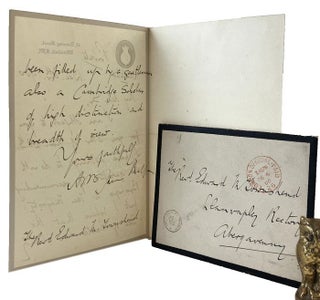 been filled up by a gentleman
also a Cambridge Scholar
of high distinction and
breadth of view.
Yours faithfully
The
Revd Edward M. Townshend
The Revd Edward M. Townshend
Llanvapley Rectory
Abergavenny